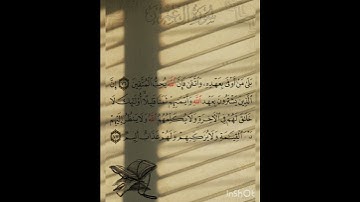 بَلَىٰ مَنْ أَوْفَىٰ بِعَهْدِهِۦ وَٱتَّقَىٰ فَإِنَّ ٱللَّهَ يُحِبُّ ٱلْمُتَّقِينَ ٧٦ إِنَّ
ٱلَّذِينَ يَشْتَرُونَ بِعَهْدِ ٱللَّهِ وَأَيْمَٰنِهِمْ ثَمَنًا قَلِيلًا أُو۟لَٰٓئِكَ لَا
خَلَٰقَ لَهُمْ فِى ٱلْءَاخِرَةِ وَلَا يُكَلِّمُهُمُ ٱللَّهُ وَلَا يَنظُرُ إِلَيْهِمْ
يَوْمَ ٱلْقِيَٰمَةِ وَلَا يُزَكِّيهِمْ وَلَهُمْ عَذَابٌ أَلِيمٌ ٧٧
InShOt